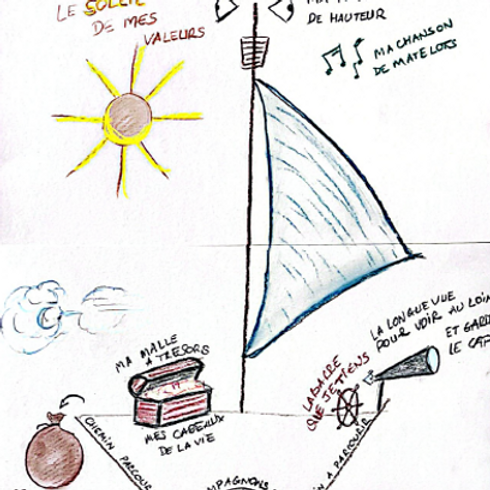 LE SOLEIL
DE MES
VALEURS
DE HAUTEUR
MA CHANSON
DE MATELOTS
LA LONGUE VUE
POUR VOIR AU LOIN
ET GARDER
LE CAP
MA MALLE
A TRESORS
LA BARRE
QUE JE TIENS
MES CADEAUX
DE LA VIE
CHEMIN PARCOURU
A PARCOURIR